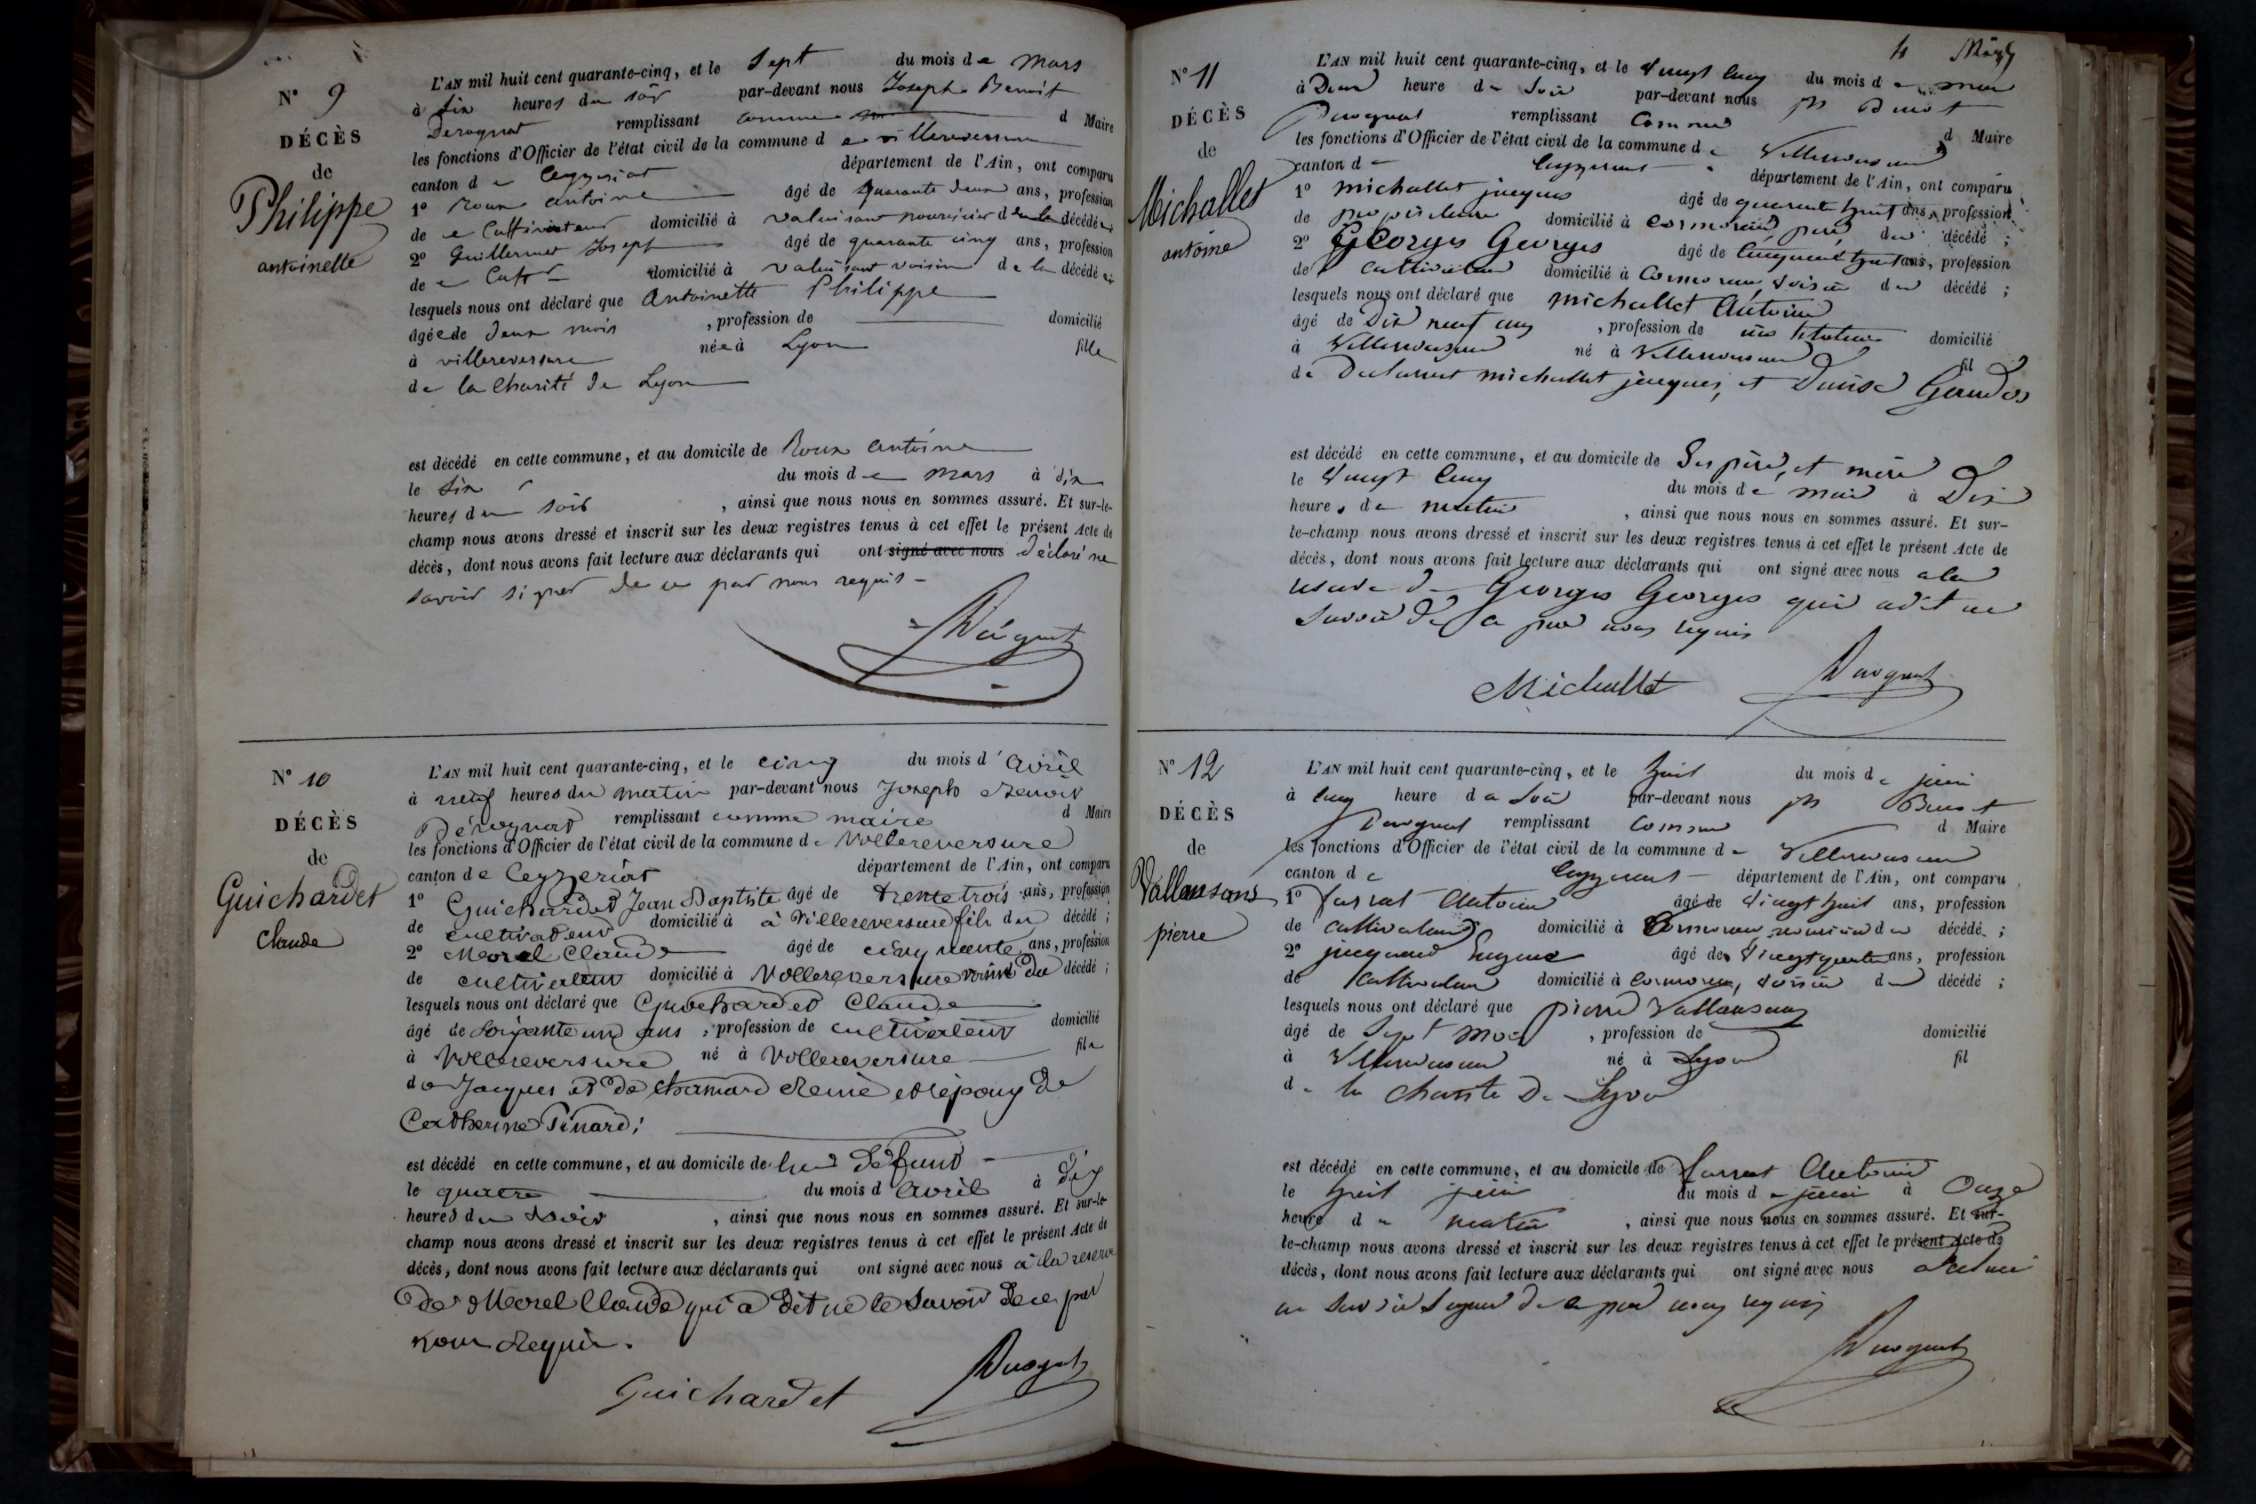 N° 9
DÉCÈS
de
Philippe
antoinette
L'AN mil huit cent quarante-cinq, et le Sept du mois de mars
à six heures du soir par-devant nous Joseph Benoit
Derognat remplissant comme d Maire
les fonctions d'Officier de l'état civil de la commune de villereversure
canton de Ceyzeriat département de l'Ain, ont comparu
1° Roux antoine âgé de quarante deux ans, profession
de Cultivateur domicilié à valuisant nourricier de la décédée
2° Guillermet Joseph âgé de quarante cinq ans, profession
de Cult domicilié à valuisant voisin de la décédée
lesquels nous ont déclaré que Antoinette Philippe
âgée de deux mois , profession de domicilié
à villereversure née à Lyon fille
de la Charité de Lyon
est décédé en cette commune, et au domicile de Roux antoine
le six du mois de mars à dix
heures du soir , ainsi que nous nous en sommes assuré. Et sur-le-
champ nous avons dressé et inscrit sur les deux registres tenus à cet effet le présent Acte de
décès, dont nous avons fait lecture aux déclarants qui ont signé avec nous déclaré ne
savoir signer de ce par nous requis
Derognat
N° 10
DÉCÈS
de
Guichardet
Claude
L'AN mil huit cent quarante-cinq, et le cinq du mois d'avril
à neuf heures du matin par-devant nous Joseph Benoit
Dérognat remplissant comme maire d Maire
les fonctions d'Officier de l'état civil de la commune de Villereversure
canton de Ceyzeriat département de l'Ain, ont comparu
1° Guichardet Jean Baptiste âgé de trente trois ans, profession
de cultivateur domicilié à à Villereversure fils du décédé ;
2° Morel Claude âgé de cinquante ans, profession
de cultivateur domicilié à Villereversure voisin du décédé ;
lesquels nous ont déclaré que Guichardet Claude
âgé de soixante un ans , profession de cultivateur domicilié
à Villereversure né à Villereversure fils
de Jacques et de Chanard Reine et époux de
Catherine Pinard ;
est décédé en cette commune, et au domicile de lieu défunt
le quatre du mois d'avril à dix
heures du soir , ainsi que nous nous en sommes assuré. Et sur-le-
champ nous avons dressé et inscrit sur les deux registres tenus à cet effet le présent Acte de
décès, dont nous avons fait lecture aux déclarants qui ont signé avec nous à la reserve
de Morel Claude qui a dit ne le savoir de ce par
nous Requis.
Guichardet Derognat
4
N° 11
DÉCÈS
de
Michallet
antoine
L'AN mil huit cent quarante-cinq, et le vingt cinq du mois de mai
à Deux heure du soir par-devant nous Jh Benoit
Derognat remplissant Comme d Maire
les fonctions d'Officier de l'état civil de la commune de Villereversure
canton de Ceyzeriat département de l'Ain, ont comparu
1° michallet jacques âgé de quarante huit ans, profession
de propriétaire domicilié à Cormoreau père du décédé ;
2° Georges Georges âgé de cinquante huit ans, profession
de cultivateur domicilié à Cormoreau, voisin du décédé ;
lesquels nous ont déclaré que michallet Antoine
âgé de Dix neuf ans , profession de instituteur domicilié
à Villereversure né à Villereversure fil
de Déclarant michallet jacques, et Denise Gandos
est décédé en cette commune, et au domicile de Ses père, et mère
le vingt cinq du mois de mai à Dix
heures du matin , ainsi que nous nous en sommes assuré. Et sur-
le-champ nous avons dressé et inscrit sur les deux registres tenus à cet effet le présent Acte de
décès, dont nous avons fait lecture aux déclarants qui ont signé avec nous a la
reserve de Georges Georges qui a dit ne
savoir de ce par nous requis
Michallet Derognat
N° 12
DÉCÈS
de
Vallansans
pierre
L'AN mil huit cent quarante-cinq, et le huit du mois de juin
à cinq heure du soir par-devant nous Jh Benoit
Derognat remplissant Comme d Maire
les fonctions d'Officier de l'état civil de la commune de Villereversure
canton de Ceyzeriat département de l'Ain, ont comparu
1° Antoine âgé de vingt huit ans, profession
de cultivateur domicilié à Cormoreau, nourricier du décédé ;
2° jacquand Eugene âgé de vingt quatre ans, profession
de Cultivateur domicilié à Cormoreau, voisin du décédé ;
lesquels nous ont déclaré que pierre Vallansans
âgé de Sept mois , profession de domicilié
à Villereversure né à Lyon fil
de la charité de Lyon
est décédé en cette commune, et au domicile de Antoine
le huit juin du mois de juin à Onze
heure du matin , ainsi que nous nous en sommes assuré. Et sur-
le-champ nous avons dressé et inscrit sur les deux registres tenus à cet effet le présent Acte de
décès, dont nous avons fait lecture aux déclarants qui ont signé avec nous
ne savoir signer de ce par nous requis
Derognat